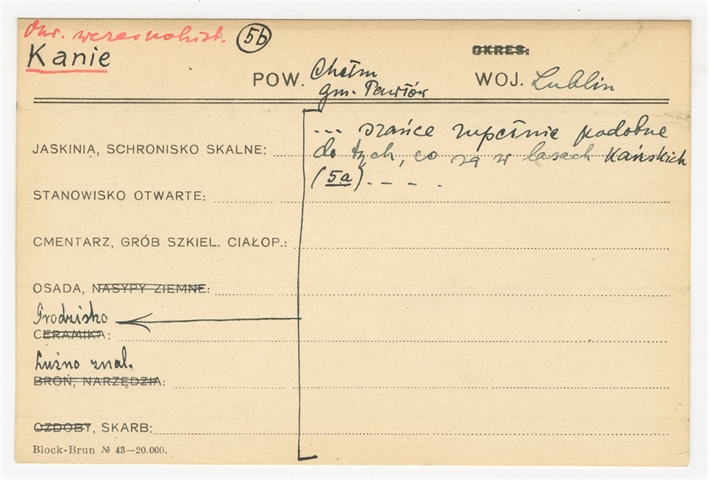 Okr. wczesnohist.
Kanie
5b
OKRES:
POW. Chełm
gm. Pawłów
WOJ. Lublin
... szańce zupełnie podobne
JASKINIA, SCHRONISKO SKALNE: do tych, co są w lasach Kańskich
(5a) – – – .
STANOWISKO OTWARTE:
CMENTARZ, GRÓB SZKIEL. CIAŁOP.:
OSADA, NASYPY ZIEMNE:
Grodzisko
CERAMIKA:
Luźno znal.
BROŃ, NARZĘDZIA:
OZDOBY, SKARB:
Block-Brun № 43—20.000.